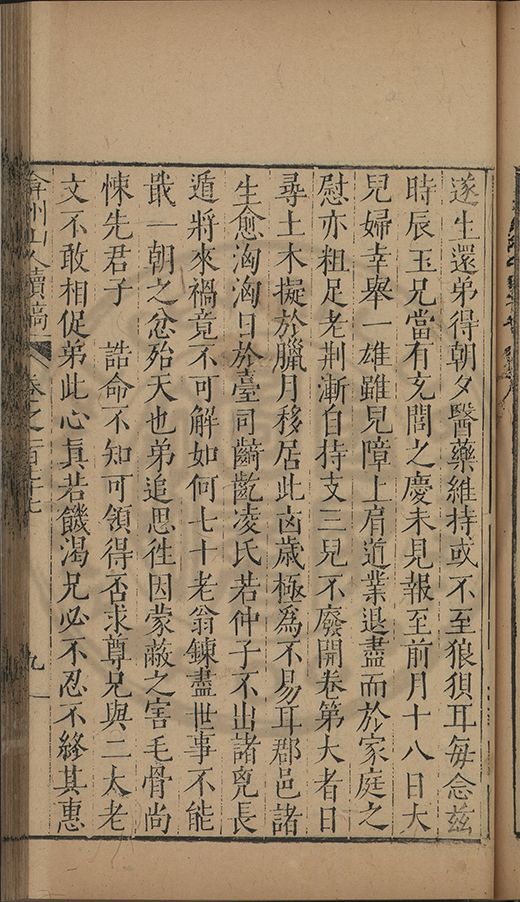 遂生還弟得朝夕醫藥維持或不至狼狽耳每念茲
時辰玉兄當有充閭之慶未見報至前月十八日大
兒婦幸舉一雄雖兒障上肩道業退盡而於家庭之
慰亦粗足老荆漸自持支三兒不廢開卷第大者日
尋土木擬於臘月移居此凶歲極為不易耳郡邑諸
生愈洶洶日於臺司齮齕凌氏若仲子不出諸兇長
遁將來禍竟不可解如何七十老翁鍊盡世事不能
戢一朝之忿殆天也弟追思徃因蒙蔽之害毛骨尚
悚先君子 誥命不知可領得否求尊兄與二太老
文不敢相促弟此心真若饑渴兄必不忍不終其惠
弇州山人續稿 卷之一百七十七 九